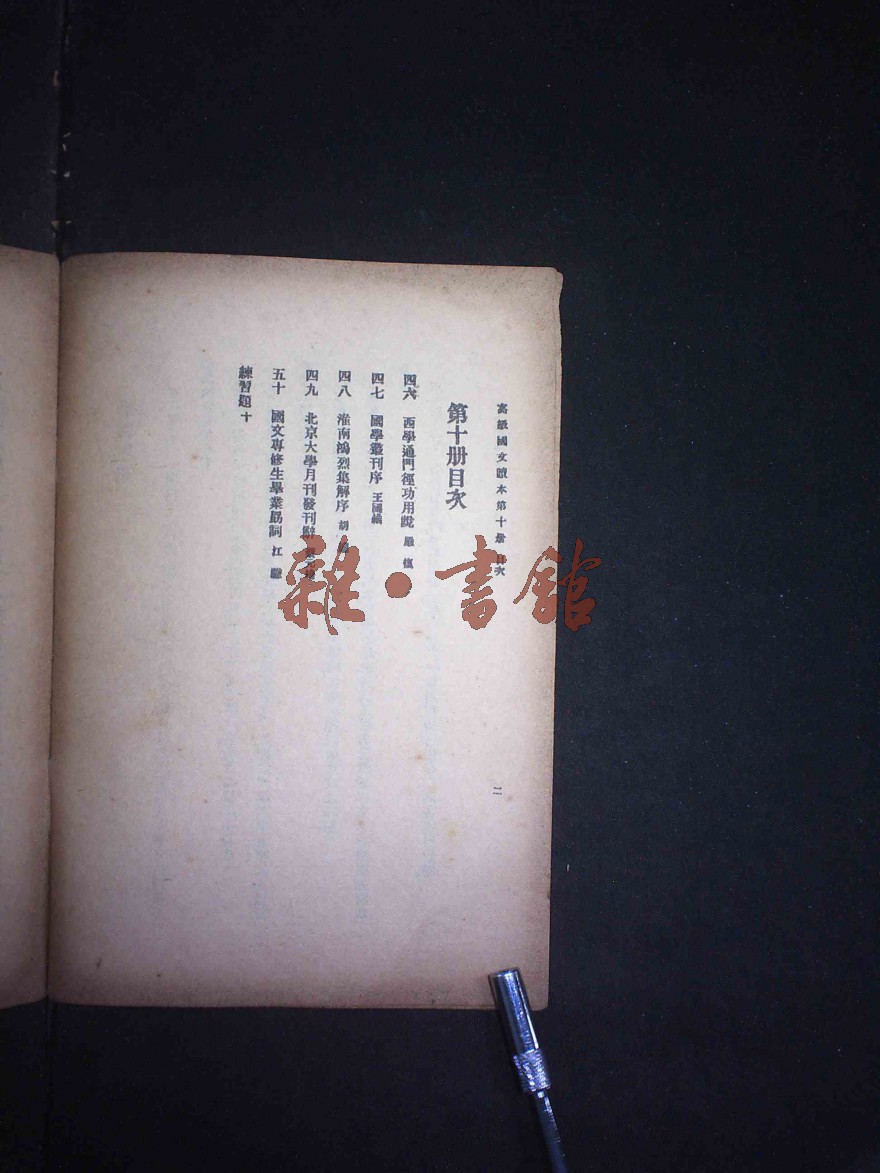 高級國文讀本第十册 目次
二
第十册目次
四六 西學通門徑功用說 嚴復
四七 國學叢刊序 王國維
四八 淮南鴻烈集解序 胡適
四九 北京大學月刊發刊辭
五十 國文專修生畢業勗詞 江
練習題十
雜·書館